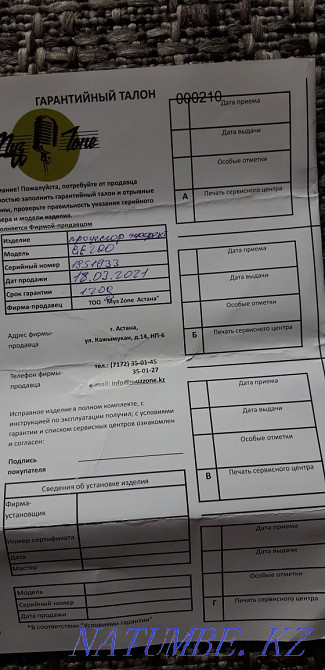 ГАРАНТИЙНЫЙ ТАЛОН
000210
Муз Zone
Пожалуйста, потребуйте от продавца
заполнить гарантийный талон и отрывные
проверьте правильность указания серийного
и модели изделия.
Фирмой-продавцом
Изделие процессор
Модель
Серийный номер 1951933
Дат продажи 18.03.2021
Срок гарантии 1 год
Фирма-продавец ТОО "Mys Zone Астана"
Адрес фирмы-продавца
г. Астана,
ул. Кажымукан, д.14, НП-6
Телефон фирмы-продавца
тел.: (7172) 35-01-45
35-01-27
e-mail: info@muzzone.kz
Исправное изделие в полном комплекте, с
инструкцией по эксплуатации получил; с условиями
гарантии и списком сервисных центров ознакомлен
и согласен:
Подпись
покупателя
Сведения об установке изделия
Фирма-
установщик
Номер сертификата
Дата
Мастер
Модель
Серийный номер
Дата продажи
*В соответствии "Условиями гарантии"
Дата приема
Дата выдачи
Особые отметки
А Печать сервисного центра
Дата приема
Дата выдачи
Особые отметки
Б Печать сервисного центра
Дата приема
Дата выдачи
Особые отметки
В Печать сервисного центра
Дата приема
Дата выдачи
Особые отметки
Г Печать сервисного центра
NATUMBE.KZ